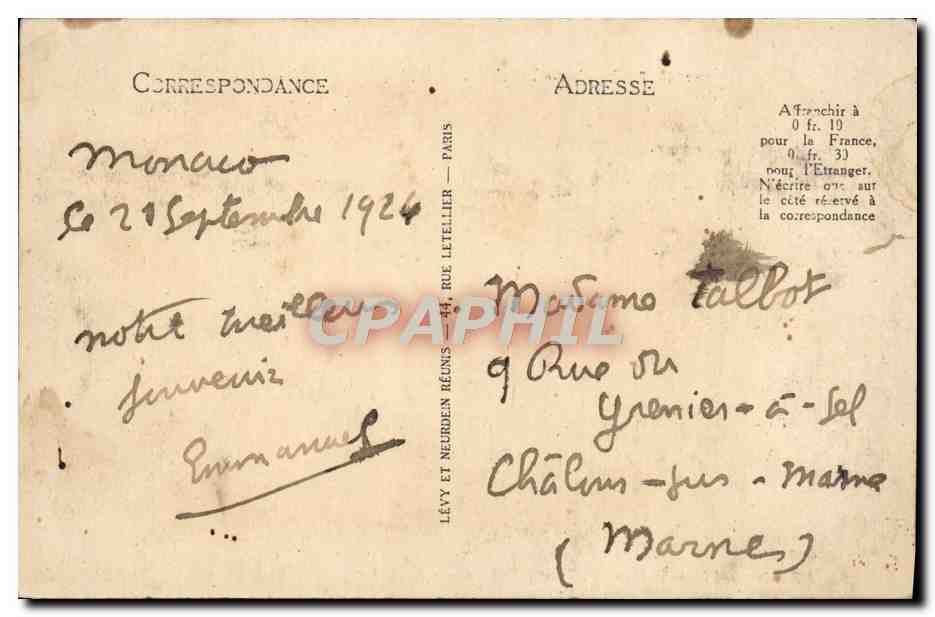 CORRESPONDANCE
Monaco
le 21 Septembre 1924
notre meilleur
souvenir
Emmanuel
LÉVY ET NEURDEIN RÉUNIS — 44, RUE LETELLIER — PARIS
ADRESSE
Affranchir à
0 fr. 10
pour la France,
0 fr. 30
pour l'Etranger.
N'écrire que sur
le côté réservé à
la correspondance
Madame Talbot
9 Rue du
Grenier-à-Sel
Châlons-sur-Marne
(Marne)
CPAPHIL